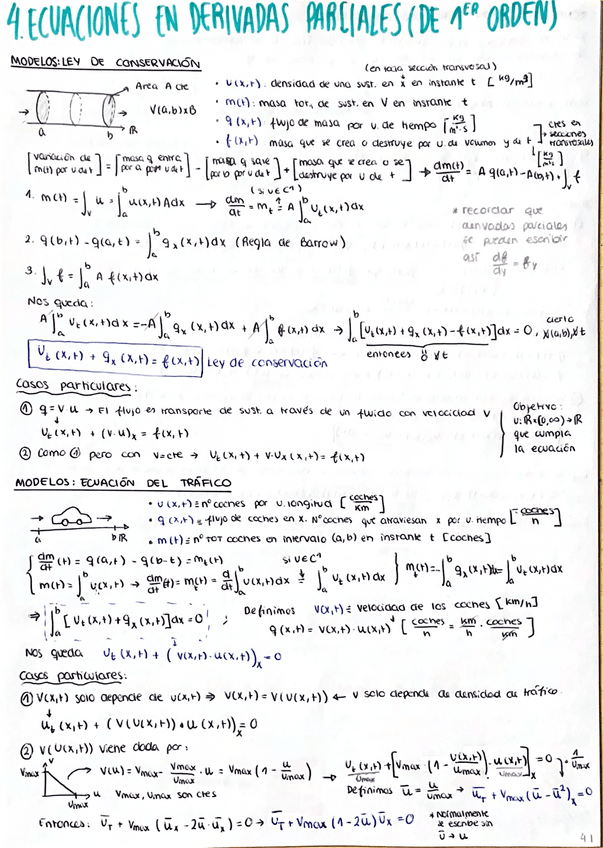 4. ECUACIONES EN DERIVADAS PARCIALES (DE 1ER ORDEN)
MODELOS: LEY DE CONSERVACIÓN
(en cada sección transversal)
Area A cte
V(a,b)xB
a b R
• u(x,t): densidad de una sust. en x en instante t [kg/m³]
• m(t): masa tot. de sust. en V en instante t
• q(x,t): flujo de masa por u. de tiempo [kg/m²·s]
• f(x,t): masa que se crea o destruye por u. de volumen y de t [kg/m³·s]
ctes en secciones transversales
[variación de m(t) por u de t] = [masa q entra por a por u de t] - [masa q sale por b por u de t] + [masa que se crea o se destruye por u de t] → dm(t)/dt = A q(a,t) - A(b,t) + ∫_v f
1. m(t) = ∫_v u = ∫_a^b u(x,t) A dx → dm/dt = m_t = A ∫_a^b u_t(x,t) dx
(si u∈C¹)
2. q(b,t) - q(a,t) = ∫_a^b q_x(x,t) dx (Regla de Barrow)
* recordar que
derivadas parciales
se pueden escribir
así df/dy = f_y
3. ∫_v f = ∫_a^b A f(x,t) dx
Nos queda:
A ∫_a^b u_t(x,t) dx = -A ∫_a^b q_x(x,t) dx + A ∫_a^b f(x,t) dx → ∫_a^b [u_t(x,t) + q_x(x,t) - f(x,t)] dx = 0, cierto ∀(a,b), ∀t
u_t(x,t) + q_x(x,t) = f(x,t) Ley de conservación
Casos particulares:
① q = v·u → El flujo es transporte de sust. a través de un fluido con velocidad v
↓
u_t(x,t) + (v·u)_x = f(x,t)
② Como ① pero con v=cte → u_t(x,t) + v·u_x(x,t) = f(x,t)
Objetivo:
u: R×(0,∞) → R
que cumpla
la ecuación
MODELOS: ECUACIÓN DEL TRÁFICO
• u(x,t) ≡ nº coches por u. longitud [coches/km]
• q(x,t) ≡ flujo de coches en x. Nº coches que atraviesan x por u. tiempo [coches/h]
• m(t) ≡ nº TOT coches en intervalo (a,b) en instante t [coches]
a b R
dm/dt (t) = q(a,t) - q(b-t) = m_t(t)
m(t) = ∫_a^b u(x,t) → dm/dt (t) = m_t(t) = d/dt ∫_a^b u(x,t) dx = ∫_a^b u_t(x,t) dx
si u∈C¹
m_t(t) = -∫_a^b q_x(x,t) dx = ∫_a^b u_t(x,t) dx
⇒ ∫_a^b [u_t(x,t) + q_x(x,t)] dx = 0 ;
Definimos v(x,t) ≡ velocidad de los coches [km/h]
q(x,t) = v(x,t)·u(x,t) [coches/h = km/h · coches/km]
Nos queda u_t(x,t) + (v(x,t)·u(x,t))_x = 0
Casos particulares:
① v(x,t) solo depende de u(x,t) ⇒ v(x,t) = v(u(x,t)) ← v solo depende de densidad de tráfico.
↓
u_t(x,t) + (v(u(x,t))·u(x,t))_x = 0
② v(u(x,t)) viene dada por:
Vmax v
u
umax
v(u) = vmax - vmax/umax · u = vmax (1 - u/umax) → u_t(x,t)/umax + [vmax·(1 - u(x,t)/umax)·u(x,t)/umax]_x = 0 · 1/umax
vmax, umax son ctes
Definimos ū = u/umax → ū_t + vmax(ū - ū²)_x = 0
Entonces: ū_t + vmax(ū_x - 2ū·ū_x) = 0 → ū_t + vmax(1 - 2ū)ū_x = 0
* Normalmente
se escribe sin
ū → u
41